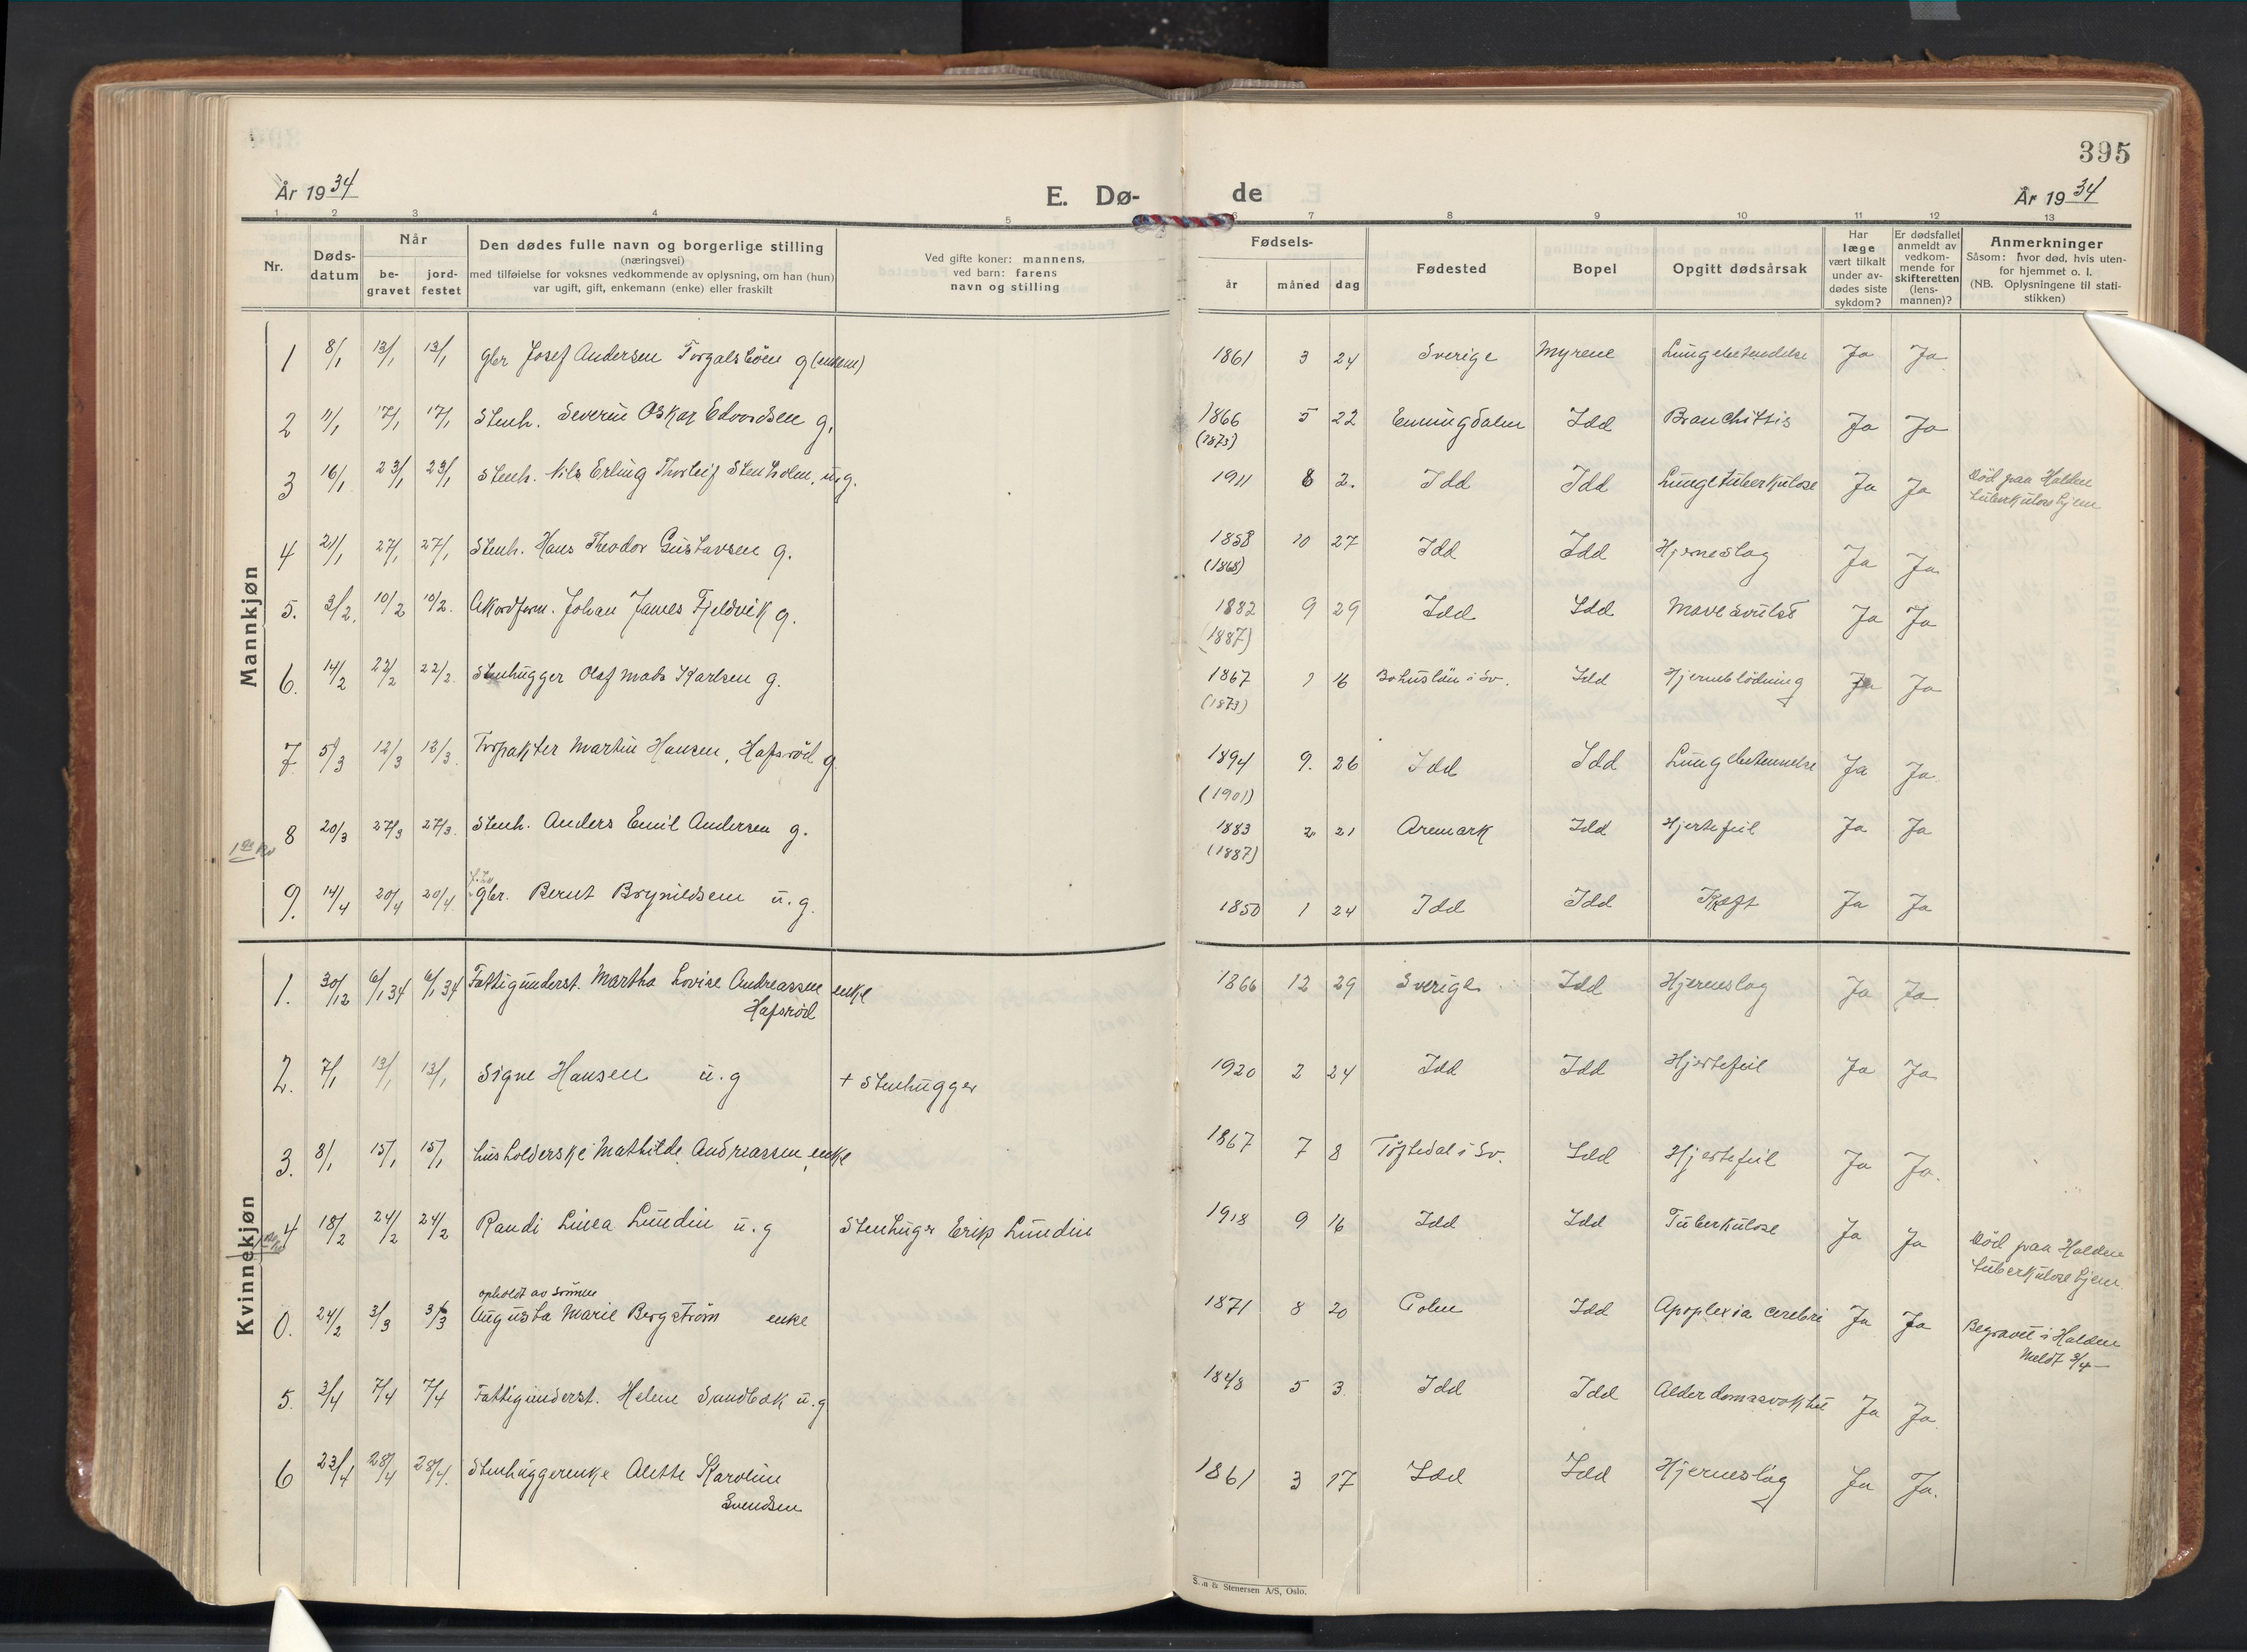 395
År 1934
E. Dø-
de
År 1934
1 2 3 4 5 6 7 8 9 10 11 12 13
Nr.
Døds-
datum
Når
be-
gravet
jord-
festet
Den dødes fulle navn og borgerlige stilling
(næringsvei)
med tilføielse for voksnes vedkommende av oplysning, om han (hun)
var ugift, gift, enkemann (enke) eller fraskilt
Ved gifte koner: mannens,
ved barn: farens
navn og stilling
Fødsels-
år måned dag
Fødested
Bopel
Opgitt dødsårsak
Har
læge
vært tilkalt
under av-
dødes siste
sykdom?
Er dødsfallet
anmeldt av
vedkom-
mende for
skifteretten
(lens-
mannen)?
Anmerkninger
Såsom: hvor død, hvis uten-
for hjemmet o. l.
(NB. Oplysningene til stati-
stikken)
Mannkjøn
1 8/1 13/1 13/1 gbr Josef Andersen g (enkem) 1861 3 24 Sverige Myrene Lungebetendelse Ja Ja
2 11/1 17/1 17/1 Stenh. Severin Oskar Edvardsen g. 1866 5 22 Enningdalen Idd Bronchittis Ja Ja
(1873)
3 16/1 23/1 23/1 Stenh. Nils Erling Thorleif Stenholm, u.g. 1911 8 2. Idd Idd Lungetuberkulose Ja Ja Död paa Halden
tuberkulosehjem
4 21/1 27/1 27/1 Stenh. Hans Theodor Gustavsen g. 1858 10 27 Idd Idd Hjerneslag Ja Ja
(1868)
5. 3/2. 10/2 10/2. Akordform. Johan James Fjeldvik g. 1882 9 29 Idd Idd Mavesvulst Ja Ja
(1887)
6. 14/2 22/2 22/2. Stenhugger Olaf Mads Karlsen g. 1867 1 16 Bohuslän i Sv. Idd Hjerneblödning Ja Ja
(1873)
7 5/3 12/3 12/3. Forpakter Martin Hansen, Hafsröd g 1894 9. 26 Idd Idd Lungebetennelse Ja Ja
(1901)
8 20/3 27/3 27/3. Stenh. Anders Emil Andersen g. 1883 2 21 Aremark Idd Hjertefeil Ja Ja
(1887)
9. 14/4 20/4 20/4. gbr. Bernt Brynildsen u.g. 1850 1 24 Idd Idd Kræft Ja Ja
Kvinnekjøn
1. 30/12 6/1 34 6/1 34 Fattigunderst. Martha Lovise Andreassen enke 1866 12 29 Sverige Idd Hjerneslag Ja Ja
Hafsröd
2. 7/1 13/1 13/1 Signe Hansen u.g + Stenhugger 1920 2 24 Idd Idd Hjertefeil Ja Ja
3. 8/1 15/1 15/1 husholderske Mathilde Andreassen enke 1867 7 8 Töftedal i Sv. Idd Hjertefeil Ja Ja.
4 18/2 24/2 24/2 Randi Linea Lundin u.g Stenhuger Erik Lundin 1918 9 16 Idd Idd Tuberkulose Ja Ja Död paa Halden
tuberkulosehjem
opholdt av sønnen
0. 24/2 3/3 3/3 Augusta Marie Bergström enke 1871 8 20 Idd Apoplexia cerebri Ja Ja Begravet i Halden
Meldt 3/4
5. 3/4 7/4 7/4 Fattigunderst. Helene Sundbæk u.g 1848 5 3 Idd Idd Alderdomssvakhet Ja Ja
6 23/4 28/4 28/4. Stenhuggerenke Alette Karoline 1861 3 17 Idd Idd Hjerneslag Ja Ja.
Svendsen
& Stenersen A/S, Oslo.